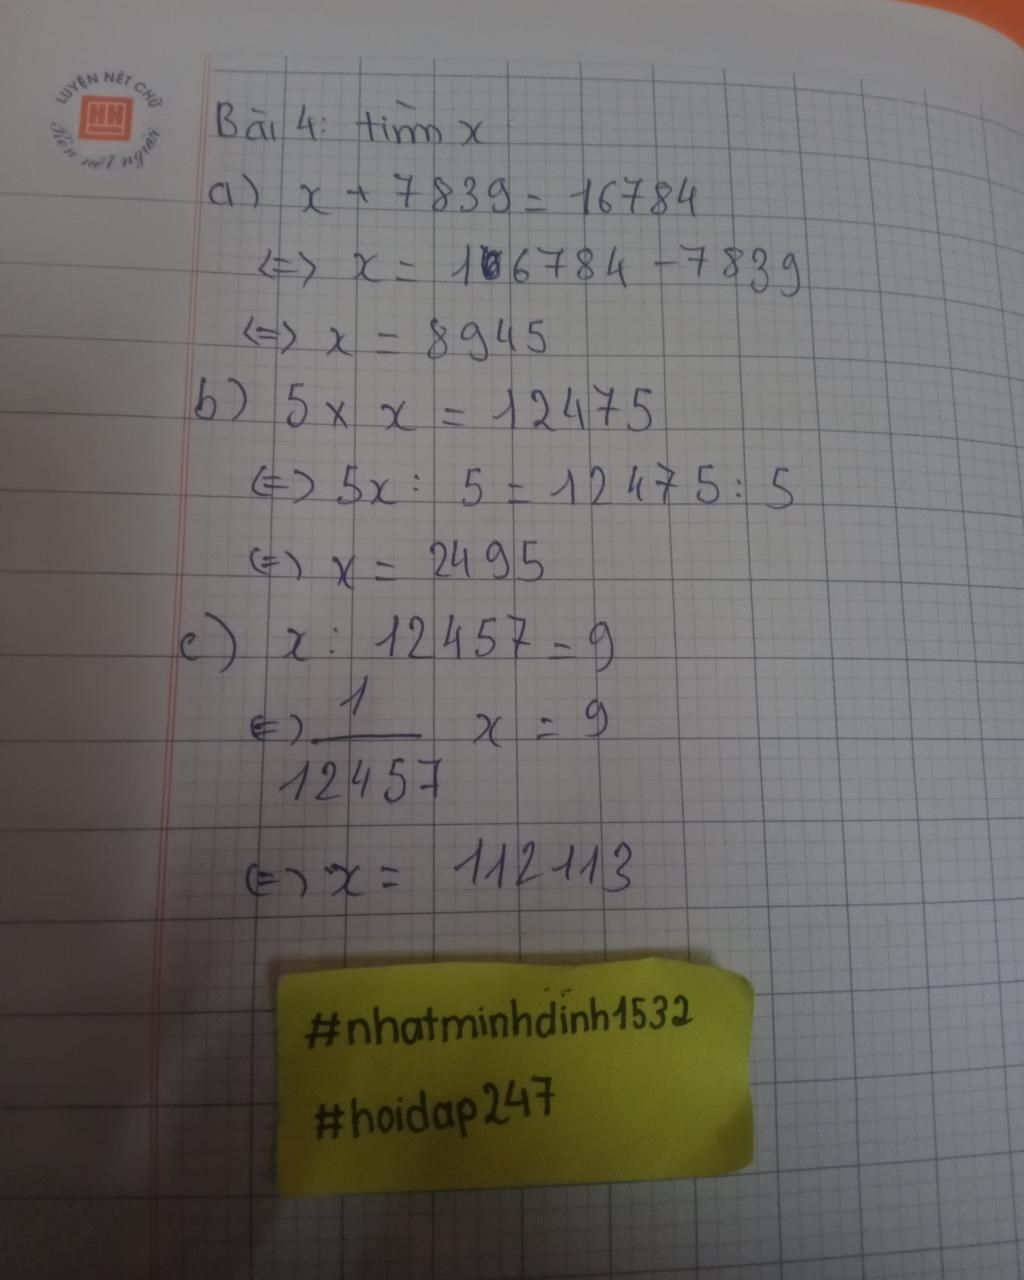 LUYỆN NÉT CHỮ
Rèn nết người
Bài 4: tìm x
a) x + 7839 = 16784
<=> x = 16784 - 7839
<=> x = 8945
b) 5 x x = 12475
<=> 5x : 5 = 12475 : 5
<=> x = 2495
c) x : 12457 = 9
<=> 1/12457 x = 9
<=> x = 112113
#nhatminhdinh1532
#hoidap247